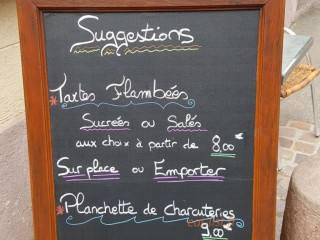 Suggestions
*Tartes Flambées
Sucrées ou Salés
aux choix à partir de 8,00€
Sur place ou Emporter
*Planchette de charcuteries
9,00€